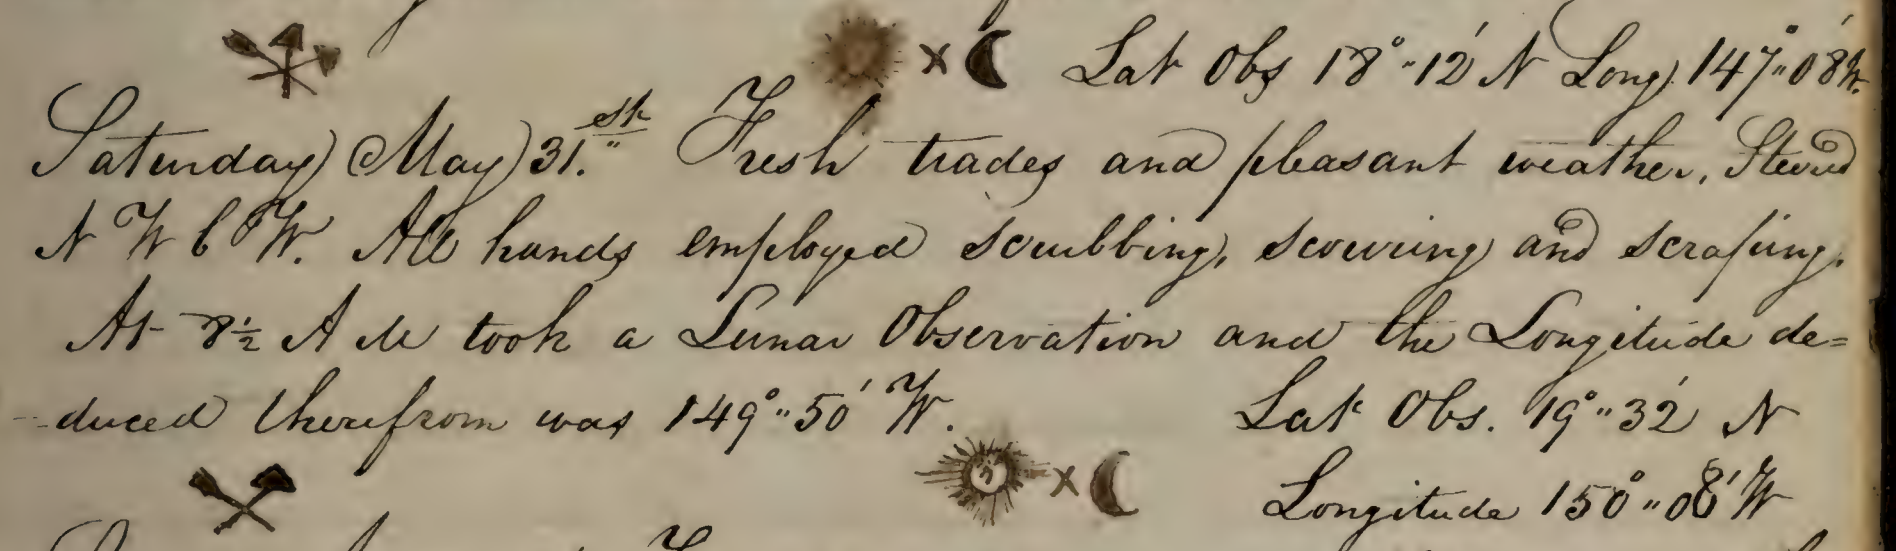 Lat Obs 18°"12' N Long. 147°"08' W.
Saturday May 31.st Fresh trades and pleasant weather, Steered
N W b W. All hands employed scrubbing, scouring and scraping.
At 8½ A M took a Lunar Observation and the Longitude de=
-duced therefrom was 149°"50' W. Lat Obs. 19°"32' N
Longitude 150°"08' W